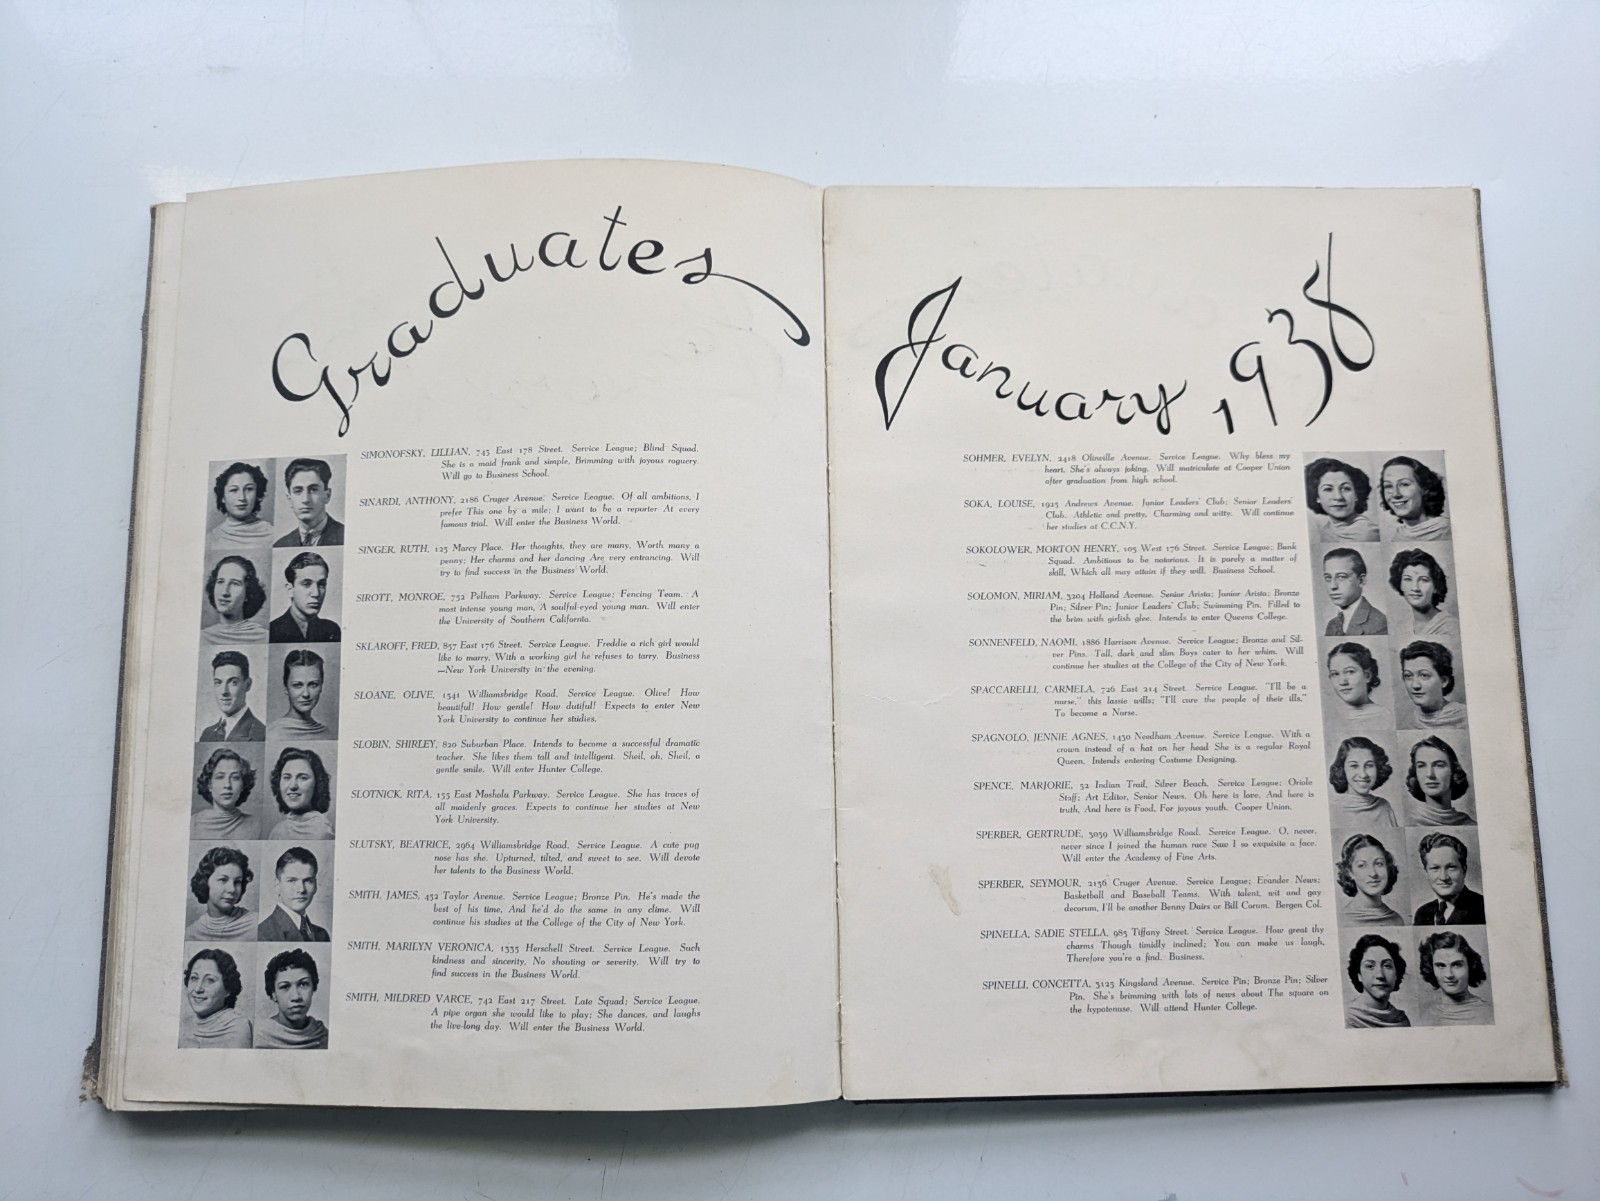 Graduates
SIMONOFSKY, LILLIAN, 745 East 178 Street. Service League; Blind Squad.
She is a maid frank and simple, Brimming with joyous roguery.
Will go to Business School.
SINARDI, ANTHONY, 2186 Cruger Avenue. Service League. Of all ambitions, I
prefer This one by a mile: I want to be a reporter At every
famous trial. Will enter the Business World.
SINGER, RUTH, 125 Marcy Place. Her thoughts, they are many, Worth many a
penny; Her charms and her dancing Are very entrancing. Will
try to find success in the Business World.
SIROTT, MONROE, 752 Pelham Parkway. Service League; Fencing Team. A
most intense young man, A soulful-eyed young man. Will enter
the University of Southern California.
SKLAROFF, FRED, 857 East 176 Street. Service League. Freddie a rich girl would
like to marry, With a working girl he refuses to tarry. Business
—New York University in the evening.
SLOANE, OLIVE, 1541 Williamsbridge Road. Service League. Olive! How
beautiful! How gentle! How dutiful! Expects to enter New
York University to continue her studies.
SLOBIN, SHIRLEY, 820 Suburban Place. Intends to become a successful dramatic
teacher. She likes them tall and intelligent. Sheil, oh, Sheil, a
gentle smile. Will enter Hunter College.
SLOTNICK, RITA, 155 East Mosholu Parkway. Service League. She has traces of
all maidenly graces. Expects to continue her studies at New
York University.
SLUTSKY, BEATRICE, 2964 Williamsbridge Road. Service League. A cute pug
nose has she. Upturned, tilted, and sweet to see. Will devote
her talents to the Business World.
SMITH, JAMES, 452 Taylor Avenue. Service League; Bronze Pin. He's made the
best of his time, And he'd do the same in any clime. Will
continue his studies at the College of the City of New York.
SMITH, MARILYN VERONICA, 1335 Herschell Street. Service League. Such
kindness and sincerity, No shouting or severity. Will try to
find success in the Business World.
SMITH, MILDRED VARCE, 742 East 217 Street. Late Squad; Service League.
A pipe organ she would like to play; She dances, and laughs
the live-long day. Will enter the Business World.
January, 1938
SOHMER, EVELYN, 2418 Olinville Avenue. Service League. Why bless my
heart, She's always joking. Will matriculate at Cooper Union
after graduation from high school.
SOKA, LOUISE, 1925 Andrews Avenue. Junior Leaders' Club; Senior Leaders'
Club. Athletic and pretty, Charming and witty. Will continue
her studies at C.C.N.Y.
SOKOLOWER, MORTON HENRY, 105 West 176 Street. Service League; Bank
Squad. Ambitious to be notorious. It is purely a matter of
skill, Which all may attain if they will. Business School.
SOLOMON, MIRIAM, 3204 Holland Avenue. Senior Arista; Junior Arista; Bronze
Pin; Silver Pin; Junior Leaders' Club; Swimming Pin. Filled to
the brim with girlish glee. Intends to enter Queens College.
SONNENFELD, NAOMI, 1886 Harrison Avenue. Service League; Bronze and Sil-
ver Pins. Tall, dark and slim Boys cater to her whim. Will
continue her studies at the College of the City of New York.
SPACCARELLI, CARMELA, 726 East 214 Street. Service League. "I'll be a
nurse," this lassie wills; "I'll cure the people of their ills."
To become a Nurse.
SPAGNOLO, JENNIE AGNES, 1430 Needham Avenue. Service League. With a
crown instead of a hat on her head She is a regular Royal
Queen. Intends entering Costume Designing.
SPENCE, MARJORIE, 32 Indian Trail, Silver Beach. Service League; Oriole
Staff; Art Editor, Senior News. Oh here is love, And here is
truth, And here is Food, For joyous youth. Cooper Union.
SPERBER, GERTRUDE, 3039 Williamsbridge Road. Service League. O, never,
never since I joined the human race Saw I so exquisite a face.
Will enter the Academy of Fine Arts.
SPERBER, SEYMOUR, 2156 Cruger Avenue. Service League; Evander News;
Basketball and Baseball Teams. With talent, wit and gay
decorum, I'll be another Benny Dairs or Bill Corum. Bergen Col.
SPINELLA, SADIE STELLA, 985 Tiffany Street. Service League. How great thy
charms Though timidly inclined; You can make us laugh,
Therefore you're a find. Business.
SPINELLI, CONCETTA, 3125 Kingsland Avenue. Service Pin; Bronze Pin; Silver
Pin. She's brimming with lots of news about The square on
the hypotenuse. Will attend Hunter College.